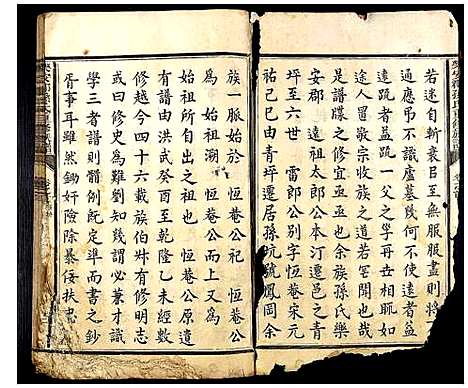 若迷自斬衰日至無服服盡則將
適慶弔不識廬墓幾何不使遠者益
遠踈者益踈一父之學再岳相忽如
途人冒敬宗收族之道若罔聞也哉
是譜牒之修宜亟也余族孫氏樂
安郡 遠祖太郎公本汀遷邑之青
坪至六世 雷郎公别字恆菴宋元
祐己 肖坪青遷居孫坑號鳳岡余
族一脈始於 恆菴公祀 恆菴公
為 始祖溯 恆菴公而上又為
始祖所自出之祖也 恆菴公原遺
一世放於洪武癸酉至乾隆乙未經數
修越今四十六載族伯廾有修明志
或曰修史為難劉知幾謂必兼才識
學三者譜則法有定準而書之鈔
胥事耳雖然鋤奸險除暴佞扶忠